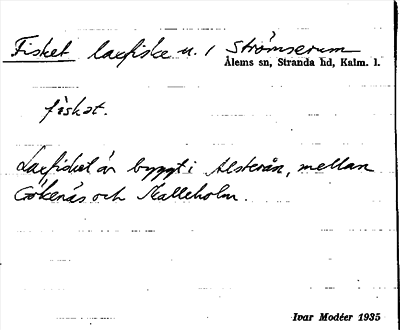 Fisket laxfiske n. / Strömserum
Ålems sn, Stranda hd, Kalm. l.
fiskət.
Laxfisket är byggt i Alsterån, mellan
Gökenäs och Kalleholm.
Ivar Modéer 1935